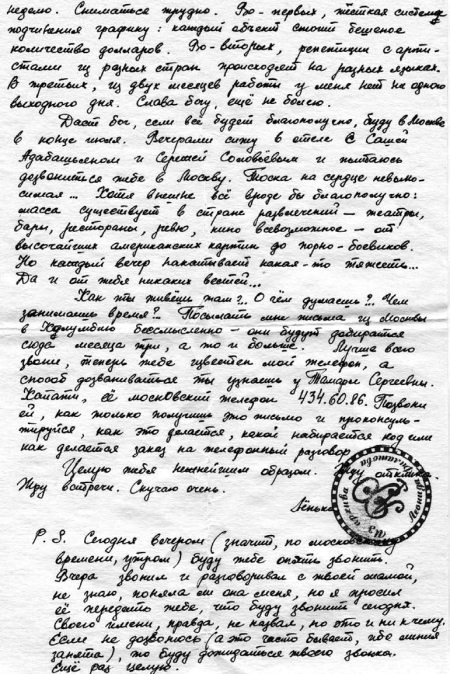 неделю. Сниматься трудно. Во-первых, жёсткая система
подчинения графику: каждый объект стоит бешеное
количество долларов. Во-вторых, репетиции с арти-
стами из разных стран происходят на разных языках.
В третьих, из двух месяцев работы у меня нет ни одного
выходного дня. Слава богу, ещё не болею.
Даст бог, если всё будет благополучно, буду в Москве
в конце июля. Вечерами сижу в отеле с Сашей
Адабашьяном и Сережей Соловьёвым и пытаюсь
дозвониться тебе в Москву. Тоска на сердце невыно-
симая... Хотя внешне всё вроде бы благополучно:
масса существует в стране развлечений – театры,
бары, рестораны, ревю, кино всевозможное – от
высочайших американских картин до порно-боевиков.
Но каждый вечер накатывает какая-то тяжесть...
Да и от тебя никаких вестей...
Как ты живёшь там?.. О чём думаешь?.. Чем
занимаешь время?.. Посылать мне письма из Москвы
в Колумбию бессмысленно – они будут добираться
сюда месяца три, а то и больше. Лучше всего
звони, теперь тебе известен мой телефон, а
способ дозваниваться ты узнаешь у Тамары Сергеевны.
Кстати, её московский телефон 434.60.86. Позвони
ей, как только получишь это письмо и проконсуль-
тируйся, как это делается, какой набирается код или
как делается заказ на телефонный разговор
Целую тебя нежнейшим образом. Жду
Жду встречи. Скучаю очень.
Лёнька
Из
Леонида
P. S. Сегодня вечером (значит, по московскому
времени, утром) буду тебе опять звонить.
Вчера звонил и разговаривал с твоей мамой,
не знаю, поняла ли она меня, но я просил
её передать тебе, что буду звонить сегодня.
Своего имени, правда, не назвал, но это и ни к чему.
Если не дозвонюсь (а это часто бывает, ибо линия
занята), то буду дожидаться твоего звонка.
Ещё раз целую.